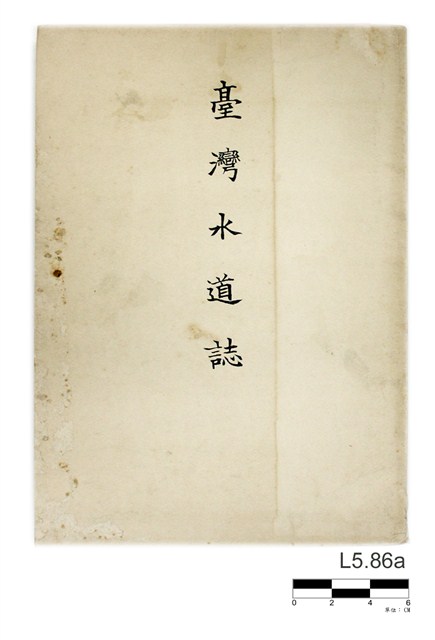 臺灣水道誌
L5.86a
0 2 4 6
單位：CM